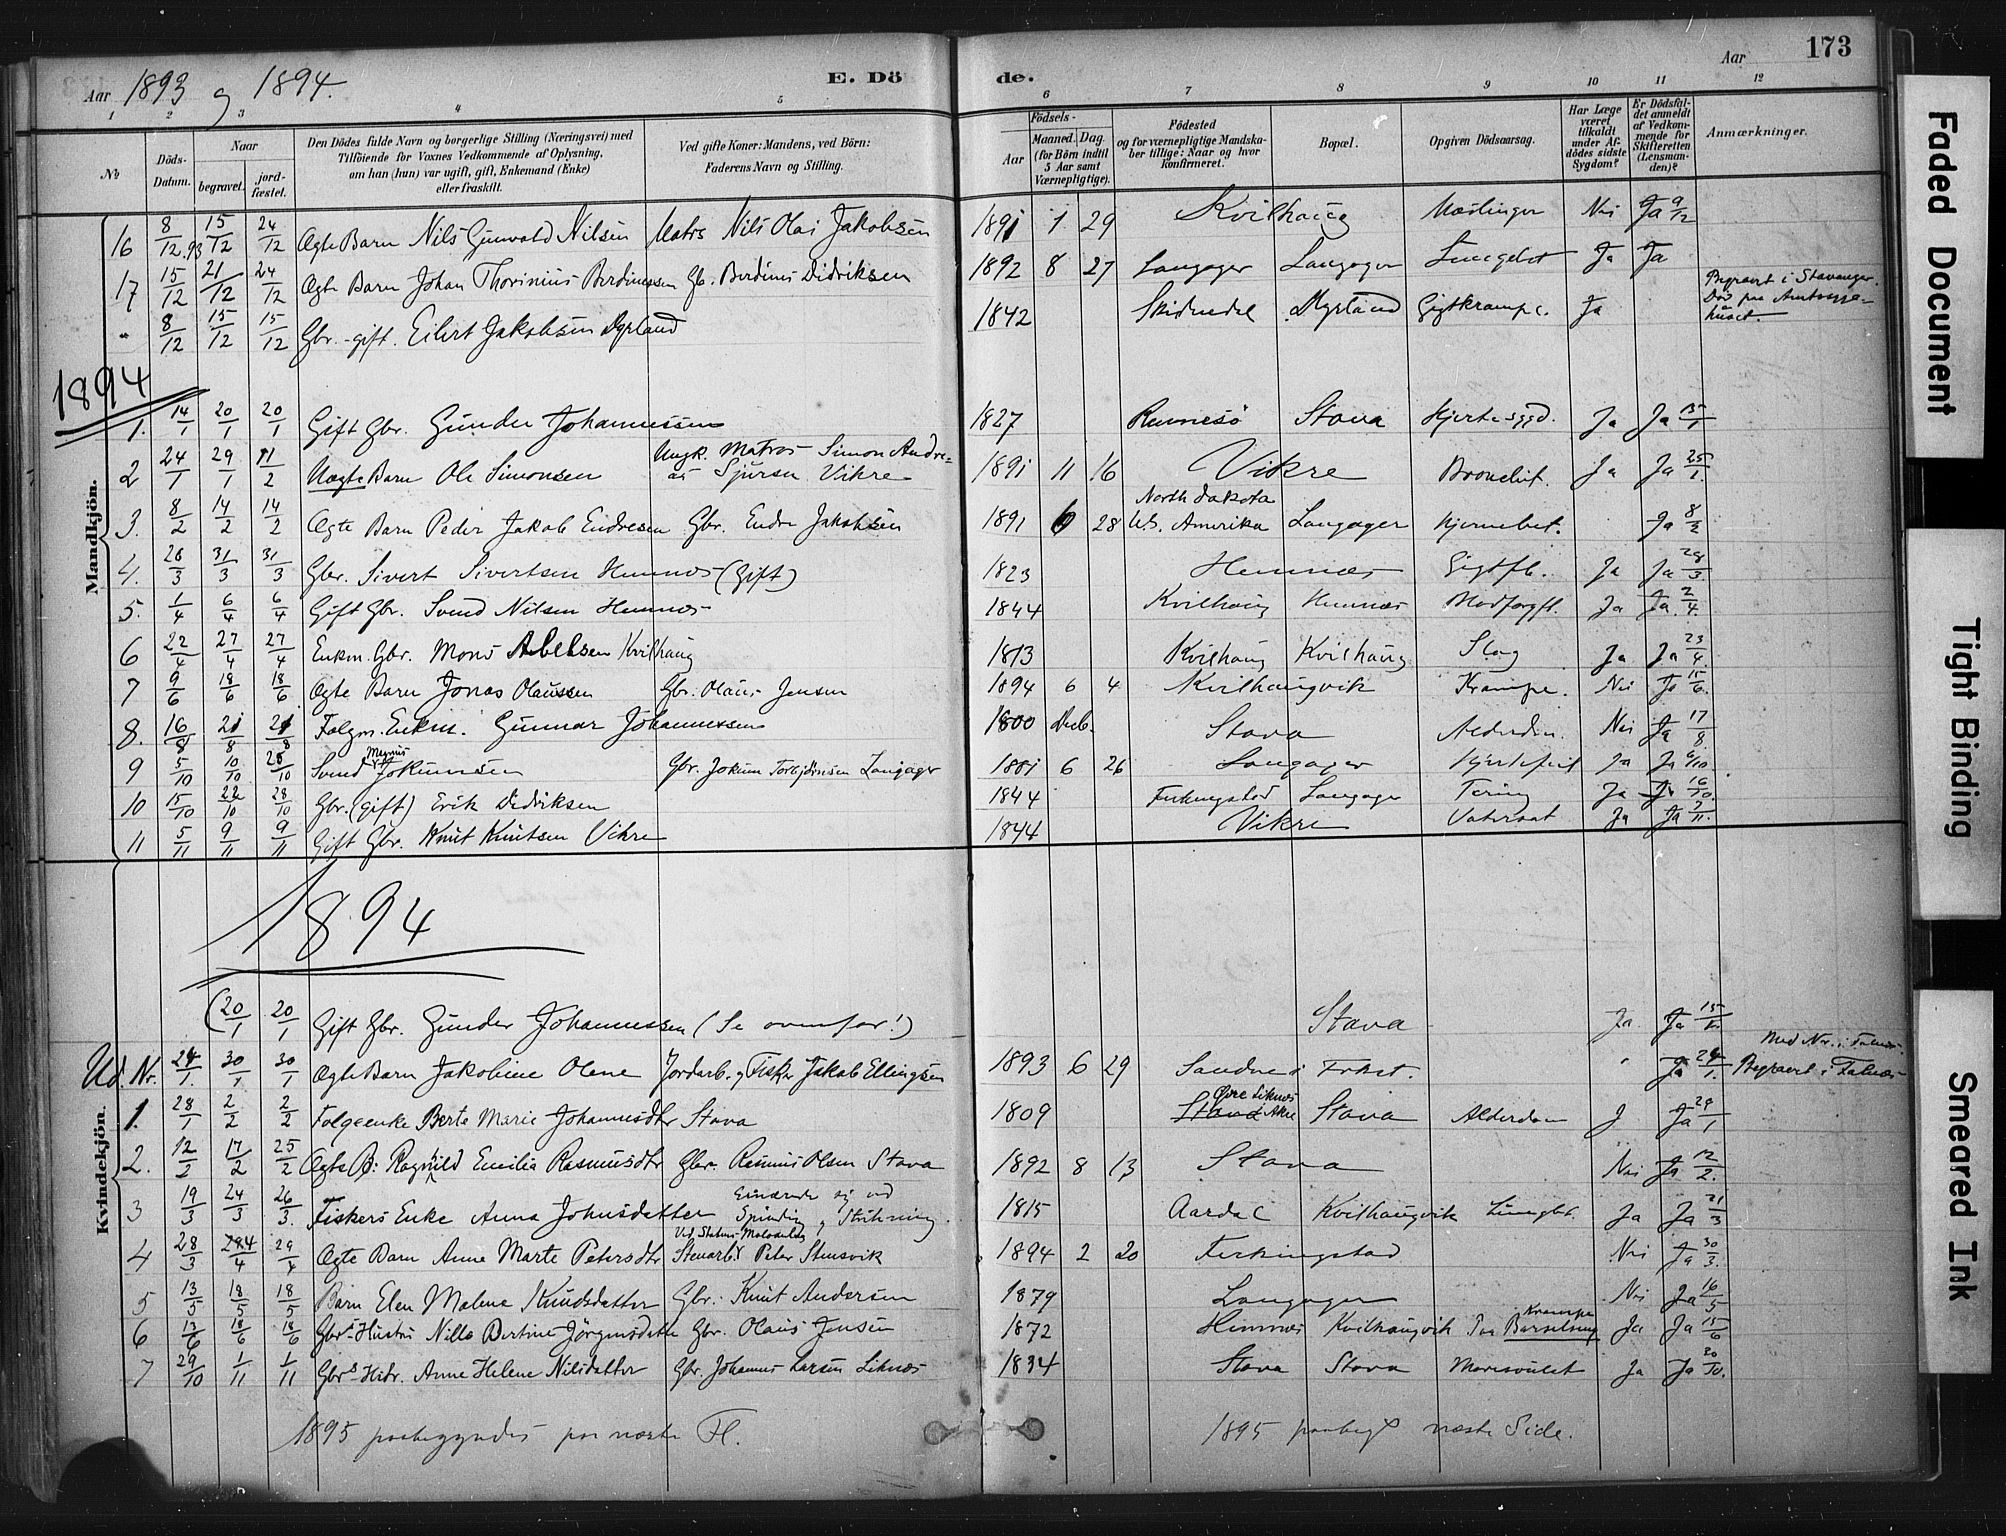 Aar 1893 og 1894.
E. Døde.
Aar 173
1 2 3 4 5 6 7 8 9 10 11 12
№
Døds-Datum.
Naar
begravet.
jord-fæstet.
Den Dödes fulde Navn og borgerlige Stilling (Næringsvei) med
Tilföiende for Voxnes Vedkommende af Oplysning,
om han (hun) var ugift, gift, Enkemand (Enke)
eller fraskilt.
Ved gifte Koner: Mandens, ved Börn:
Faderens Navn og Stilling.
Födsels-
Aar
Maaned. Dag.
(for Börn indtil 5 Aar samt Værnepligtige).
Födested
og for værnepligtige Mandskaber tillige: Naar og hvor konfirmeret.
Bopæl.
Opgiven Dödsaarsag.
Har Læge været tilkaldt under Afdödes sidste Sygdom?
Er Dödsfaldet anmeldt af Vedkommende for Skifteretten (Lensmanden)?
Anmærkninger.
Mandkjön.
16 8/12.93 15/12 24/12 Ægte Barn Nils Gunvald Nilsen Matrs Nils Olai Jakobsen 1891 1 29 Kvilhaug Mæslinger Nei Ja 9/12
17 15/12 21/12 24/12 Ægte Barn Johan Thorinius Berdinessen Gb. Berdines Didriksen 1892 8 27 Langager Langager Lungebet Ja Ja
" 8/12 15/12 15/12 Gbr. gift. Eilert Jakobsen Myrland 1842 Myrland Gigtkrampe. Ja Begravet i Stavanger. Død paa Amtssygehuset.
1894
1. 14/1 20/1 20/1 Gift Gbr. Gunder Johannessen 1827 Rennesö Stava Hjertesygd. Ja Ja 15/1
2 24/1 29/1 11/2 Uægte Barn Ole Simonsen Ungk. Matros Simon Andreas Sjursen Vikre 1891 11 16 Vikre Bronchit. Ja Ja 25/1.
3. 8/2 14/2 14/2 Ægte Barn Peder Jakob Endresen Gbr. Endre Jakobsen 1891 6 28 North Dakota U.S. Amerika Langager Hjernebet. Ja 8/2
4. 26/3 31/3 31/3 Gbr. Sivert Sivertsen Hemnes (Gift) 1823 Hemnæs Gigtfb. Ja Ja 28/3.
5. 1/4 6/4 6/4 Gift Gbr. Svend Nilsen Hemnes 1844 Kvilhaug Hemnæs Ja Ja 2/4.
6 22/4 27/4 27/4 Enkm. Gbr. Mons Abelsen Kvilhaug 1813 Kvilhaug Kvilhaug Slag Ja Ja 23/4.
7 9/6 18/6 18/6 Ægte Barn Jonas Olaussen Gbr. Olaus Jensen 1894 6 4 Kvilhaugvik Krampe. Nei Ja 15/6.
8. 16/8 21/8 21/8 Folgm. Enkm. Gunnar Johannessen 1800 Decb. Stava Alderdom. Nei Ja 17/8
9 5/10 10/10 28/10 Svend Magnus Jokumsen Gbr. Jokum Torbjørnsen Langager 1881 6 26 Langager Hjertefeil Ja Ja 6/10.
10 15/10 22/10 28/10 Gbr. (gift) Erik Didriksen 1844 Ferkingstad Langager Tæring Ja Ja 16/10.
11 5/11 9/11 9/11 Gift Gbr. Knut Knutsen Vikre 1844 Vikre Vatersot Ja Ja 7/11.
1894
Kvindekjön.
(20/1 20/1 Gift Gbr. Gunder Johannessen (Se ovenfor!) Stava Ja. Ja 15/1.
Ud. Nr. 24/1. 30/1 30/1 Ægte Barn Jakobine Olene Jordarb. og Fisker Jakob Ellingsen 1893 6 29 Sandnes i Ja 24/1. Med No. i Falnæs. Begravet i Falnæs
1. 28/1 2/2 2/2 Folgeenke Berte Marie Johannesdtr Stava 1809 Øvre Liknes Stava Akre Stava Alderdom J Ja 29/1
2. 12/2 17/2 25/2 Ægte B: Ragnhild Emilia Rasmusdtr Gbr. Rasmus Olsen Stava 1892 8 13 Stava Nei Ja 12/2.
3 19/3 24/3 26/3. Fiskers Enke Anna Johnsdatter Ernærede sig ved Spinding og Strikning. 1815 Aardal Kvilhaugvik Lungbt. Ja Ja 21/3
4 28/3 4/4 29/4 Ægte Barn Anne Marte Petersdtr Stenarbd Peter Stensvik 1894 2 20 Ferkingstad Nei Ja 30/3.
5 13/5 18/5 18/5 Barn Elen Malene Knudsdatter Gbr. Knut Andersen 1879 Langager Nei Ja 16/5
6 13/6 18/6 18/6 Gbrs Hustru Nille Bertine Jörgensdatter Gbr. Olaus Jensen 1872 Hemnæs Kvilhaugvik Krampe Paa Barselseng Ja Ja 15/6
7 29/10 1/11 1/11 Gbrs Hustr. Anne Helene Nilsdatter Gbr. Johannes Larsen Liknes 1834 Stava Stava Ja Ja 30/10.
1895 paabegyndes paa næste Fl.
1895 paabegt næste Side.
Faded Document
Tight Binding
Smeared Ink